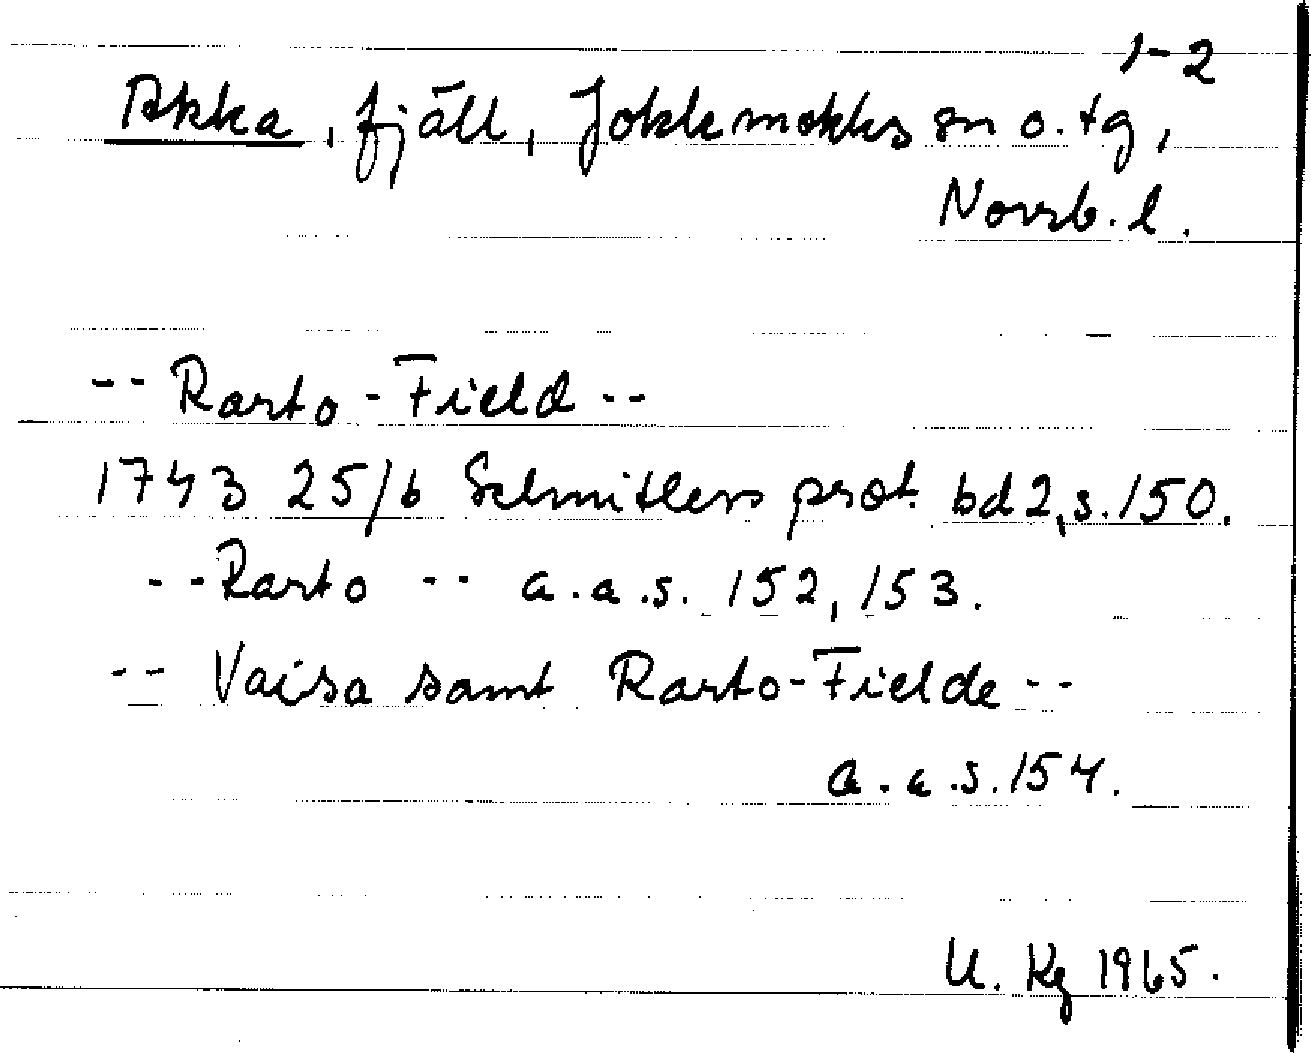 1-2
Akka, fjäll, Jokkmokks sn o. tg,
Norrb. l.
-- Rarto - Field --
1743 25/6 Schnitlers prot. bd 2, s. 150.
-- Rarto -- a. a. s. 152, 153.
-- Vaisa samt Rarto-Fielde --
a. a. s. 154.
U. Kg 1965.